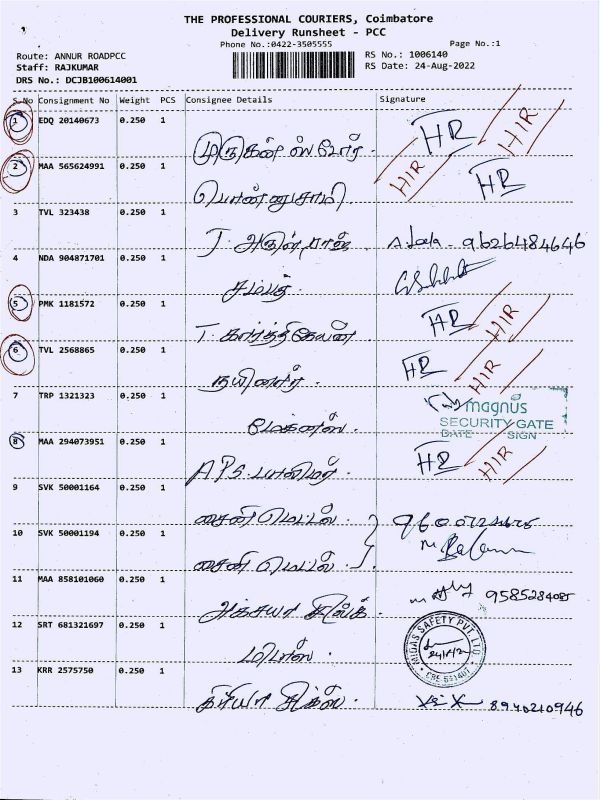 THE PROFESSIONAL COURIERS, Coimbatore
Delivery Runsheet - PCC
Phone No.:0422-3505555
Page No.:1
Route: ANNUR ROADPCC
RS No.: 1006140
Staff: RAJKUMAR
RS Date: 24-Aug-2022
DRS No.: DCJB100614001
S.No Consignment No Weight PCS Consignee Details Signature
1 EDQ 20140673 0.250 1 முருகன் ஸ்டோர். HR HIR
2 MAA 565624991 0.250 1 பொன்னுசாமி. HR HIR
3 TVL 323438 0.250 1 J. அருள்ராஜ் 9626484646
4 NDA 904871701 0.250 1 சம்பத்.
5 PMK 1181572 0.250 1 T. கார்த்திகேயன் HR HIR
6 TVL 2568865 0.250 1 HR HIR
7 TRP 1321323 0.250 1 மேக்னஸ். magnus
SECURITY GATE
DATE SIGN
8 MAA 294073951 0.250 1 A.P.S. பாலிமர். HR HIR
9 SVK 50001164 0.250 1 சைனி மெட்டல்.
10 SVK 50001194 0.250 1 சைனி மெட்டல்.
11 MAA 858101060 0.250 1 அக்சயா
12 SRT 681321697 0.250 1 மிடாஸ். MIDAS SAFETY PVT. LTD.
13 KRR 2575750 0.250 1 8940210946